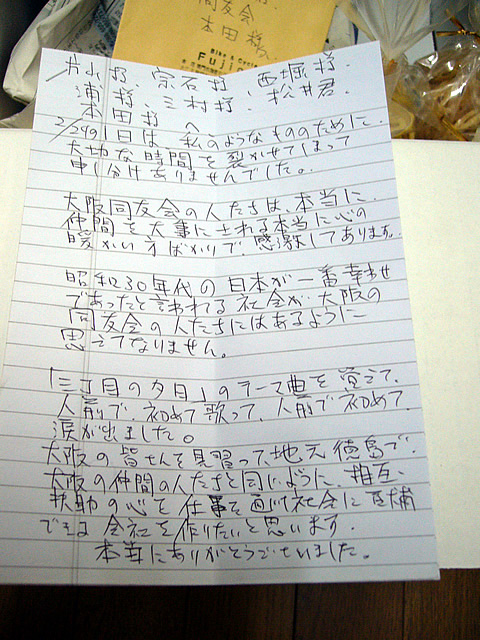 同友会
本田様
Bike & Cycle
Fuji
片山様、宗石様、西堀様、
浦様、三村様、松井君、
本田様へ
2/29の1日は、私のようなもののために、
大切な時間を裂かせてしまって
申し分けありませんでした。
大阪同友会の人たちは、本当に、
仲間を大事にされる本当に心の
暖かい方ばかりで、感激してあります。
昭和30年代の日本が一番幸わせ
であったと言われる社会が大阪の
同友会の人たちにはあるように
思えてなりません。
「三丁目の夕日」のテーマ曲を覚えて、
人前で、初めて歌って、人前で初めて、
涙が出ました。
大阪の皆さんを見習って、地元徳島で、
大阪の仲間の人たちと同じように、相互
扶助の心を仕事を通じて社会に貢献
できる会社を作りたいと思います。
本当にありがとうございました。